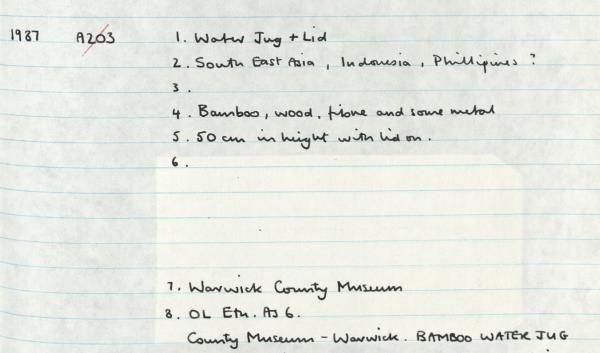 1987 A203 1. Water Jug + Lid
2. South East Asia, Indonesia, Phillipines ?
3.
4. Bamboo, wood, fibre and some metal
5. 50 cm in height with lid on.
6.
7. Warwick County Museum
8. OL Etn. AJ 6.
County Museum - Warwick. BAMBOO WATER JUG